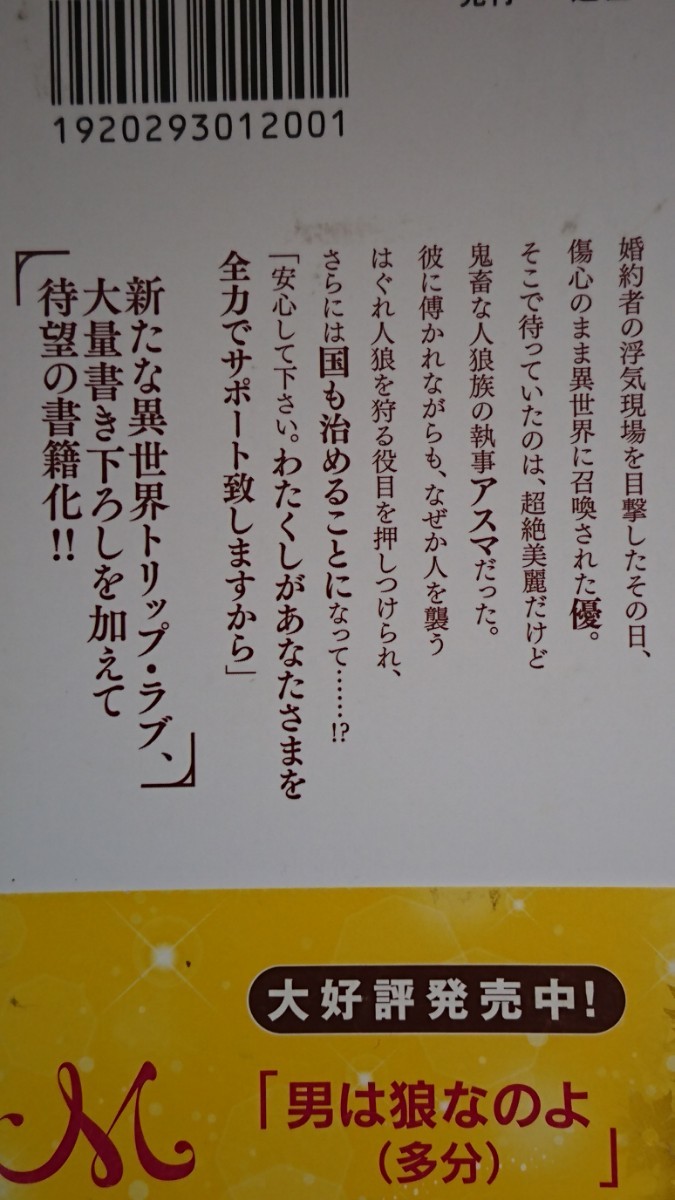 1920293012001
婚約者の浮気現場を目撃したその日、
傷心のまま異世界に召喚された優。
そこで待っていたのは、超絶美麗だけど
鬼畜な人狼族の執事アスマだった。
彼に傅かれながらも、なぜか人を襲う
はぐれ人狼を狩る役目を押しつけられ、
さらには国も治めることになって……!?
「安心して下さい。わたくしがあなたさまを
全力でサポート致しますから」
新たな異世界トリップ・ラブ、
大量書き下ろしを加えて
待望の書籍化!!
大好評発売中!
「男は狼なのよ
(多分)」
M